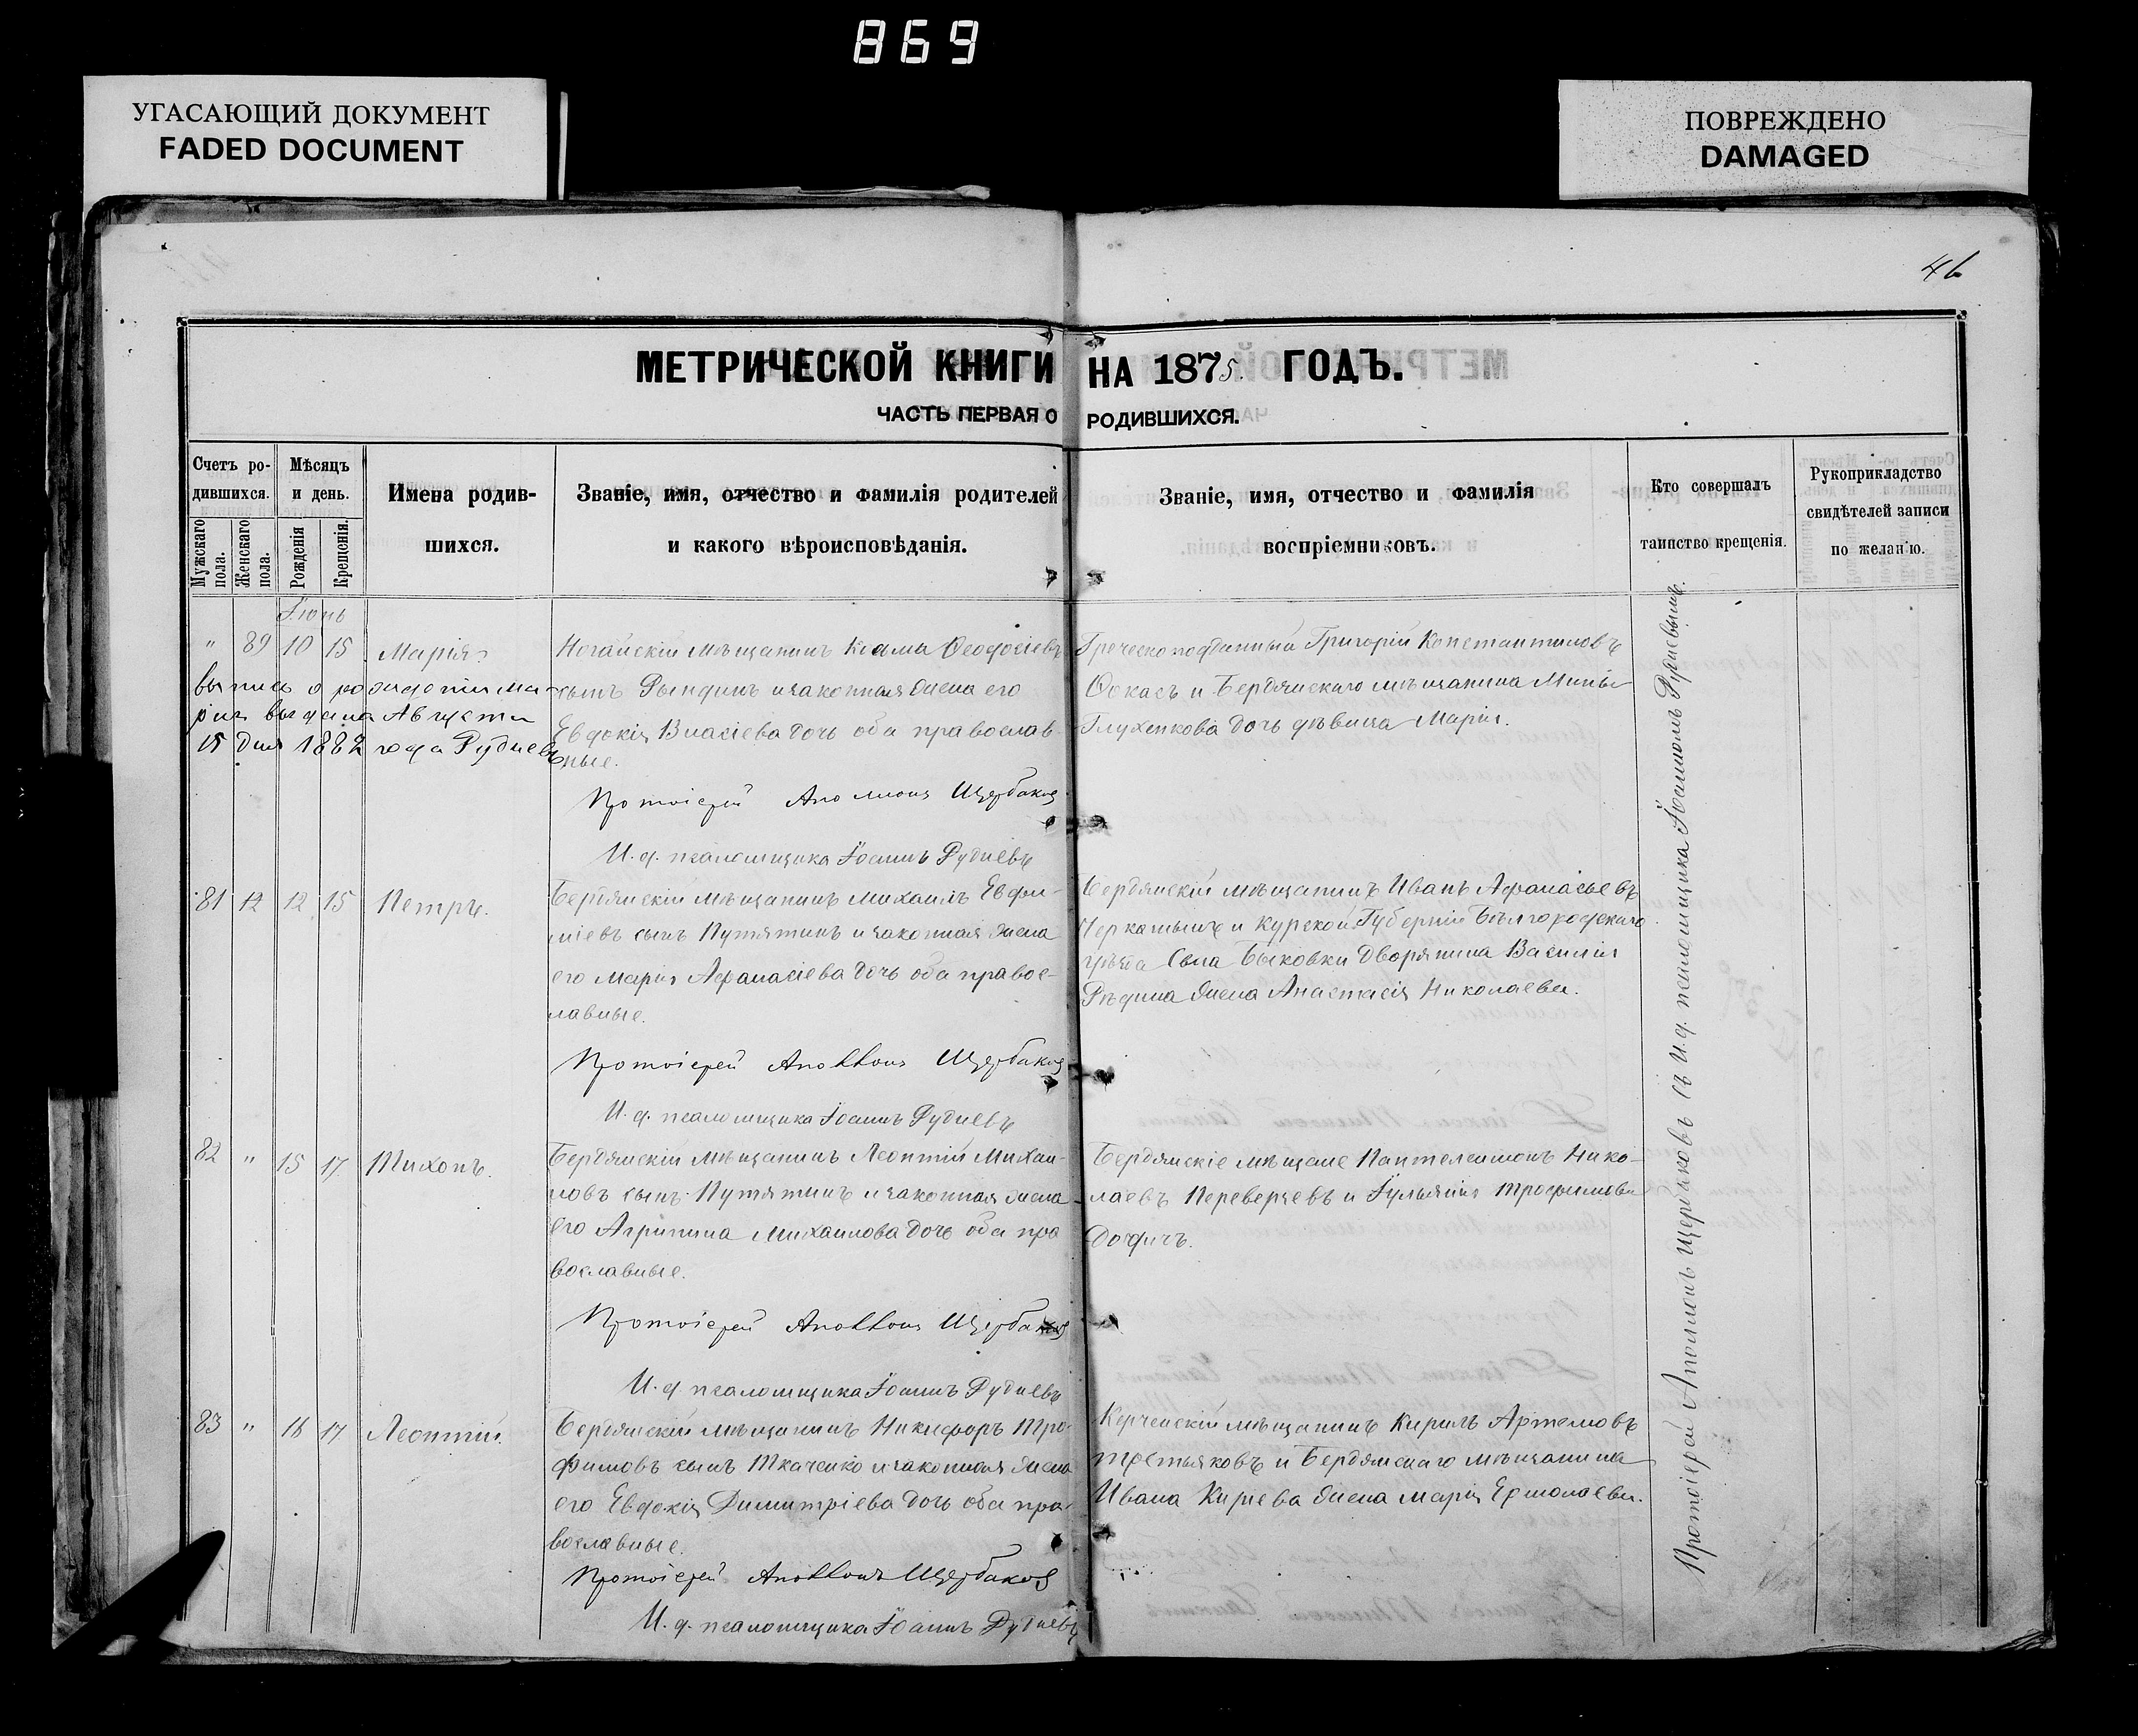 869
УГАСАЮЩИЙ ДОКУМЕНТ
FADED DOCUMENT
ПОВРЕЖДЕНО
DAMAGED
46
МЕТРИЧЕСКОЙ КНИГИ НА 1875. ГОДЪ.
ЧАСТЬ ПЕРВАЯ О РОДИВШИХСЯ.
Счетъ ро-
дившихся.
Мужскаго пола.
Женскаго пола.
Мѣсяцъ
и день.
Рожденія
Крещенія.
Имена родив-
шихся.
Званіе, имя, отчество и фамилія родителей
и какого вѣроисповѣданія.
Званіе, имя, отчество и фамилія
воспріемниковъ.
Кто совершалъ
таинство крещенія.
Рукоприкладство
свидѣтелей записи
по желанію.
Іюнь
" 89 10 15 Марія
выпись о рожденіи Ма-
ріи выдана Августа
15 дня 1882 года Рудневъ
Ногайскій мѣщанинъ Косма Ѳеодосіевъ
сынъ Рындинъ и законная жена его
Евдокія Власіева дочь оба православ-
ные.
Протоіерей Аполлонъ Щербаковъ
И. д. псаломщика Іоаннъ Рудневъ
Греческо подданный Григорій Константиновъ
Фокасъ и Бердянскаго мѣщанина Мины
Глухенкова дочь дѣвица Марія.
81 12 12 15 Петръ.
Бердянскій мѣщанинъ Михаилъ Евфи-
міевъ сынъ Путятинъ и законная жена
его Марія Афанасіева дочь оба правос-
лавные.
Протоіерей Аполлонъ Щербаковъ
И. д. псаломщика Іоаннъ Рудневъ
Бердянскій мѣщанинъ Иванъ Афанасьевъ
и Курской Губерніи Бѣлгородскаго
Села Быковки Дворянина Василія
жена Анастасія Николаева.
82 " 15 17 Тихонъ.
Бердянскій мѣщанинъ Леонтій Михаи-
ловъ сынъ Путятинъ и законная жена
его Агрипина Михаилова дочь оба пра
вославные.
Протоіерей Аполлонъ Щербаковъ
И. д. псаломщика Іоаннъ Рудневъ
Бердянскіе мѣщане Пантелеимонъ Нико-
лаевъ Переверзевъ и Іульянія Трофимова
83 " 16 17 Леонтій.
Бердянскій мѣщанинъ Никифоръ Тро-
фимовъ сынъ Ткаченко и законная жена
его Евдокія Димитріева дочь оба пра-
вославные.
Протоіерей Аполлонъ Щербаковъ
И. д. псаломщика Іоаннъ Рудневъ
Керченскій мѣщанинъ Кирилъ Артемовъ
Третьяковъ и Бердянскаго мѣщанина
Ивана Киреева жена Марія Ермолаева.
Протоіерей Аполлонъ Щербаковъ съ И. д. псаломщика Іоанномъ Рудневымъ.